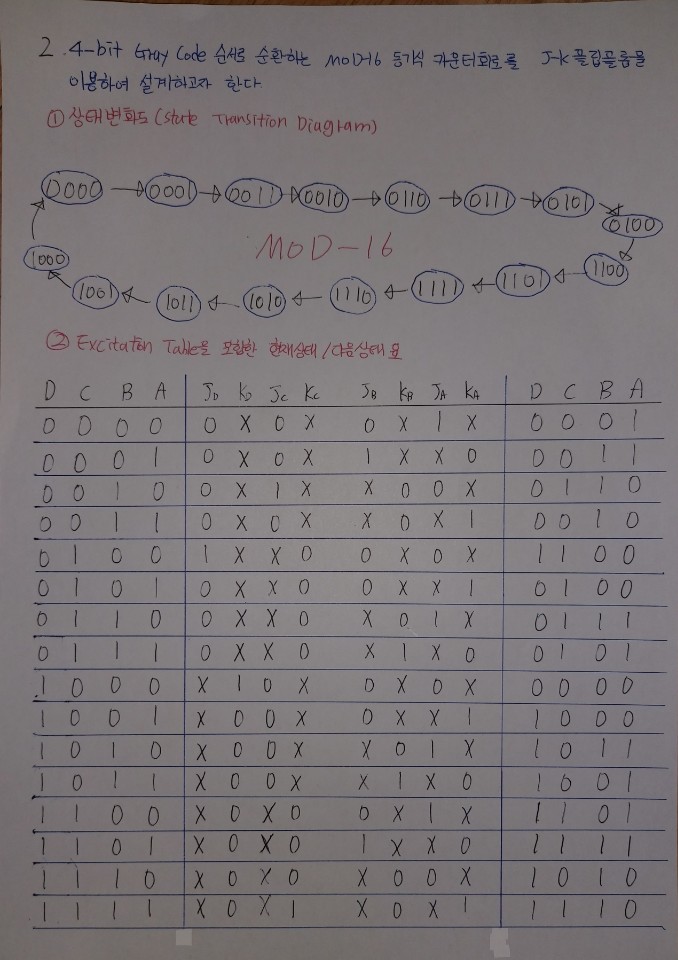 2. 4-bit Gray Code 순서로 순환하는 MOD-16 동기식 카운터회로를 J-K 플립플롭을
이용하여 설계하고자 한다.
① 상태변화도 (State Transition Diagram)
0000 → 0001 → 0011 → 0010 → 0110 → 0111 → 0101 → 0100
MOD-16
1000 ← 1001 ← 1011 ← 1010 ← 1110 ← 1111 ← 1101 ← 1100
② Excitation Table을 포함한 현재상태/다음상태 표
D C B A JD KD JC KC JB KB JA KA D C B A
0 0 0 0 0 X 0 X 0 X 1 X 0 0 0 1
0 0 0 1 0 X 0 X 1 X X 0 0 0 1 1
0 0 1 0 0 X 1 X X 0 0 X 0 1 1 0
0 0 1 1 0 X 0 X X 0 X 1 0 0 1 0
0 1 0 0 1 X X 0 0 X 0 X 1 1 0 0
0 1 0 1 0 X X 0 0 X X 1 0 1 0 0
0 1 1 0 0 X X 0 X 0 1 X 0 1 1 1
0 1 1 1 0 X X 0 X 1 X 0 0 1 0 1
1 0 0 0 X 1 0 X 0 X 0 X 0 0 0 0
1 0 0 1 X 0 0 X 0 X X 1 1 0 0 0
1 0 1 0 X 0 0 X X 0 1 X 1 0 1 1
1 0 1 1 X 0 0 X X 1 X 0 1 0 0 1
1 1 0 0 X 0 X 0 0 X 1 X 1 1 0 1
1 1 0 1 X 0 X 0 1 X X 0 1 1 1 1
1 1 1 0 X 0 X 0 X 0 0 X 1 0 1 0
1 1 1 1 X 0 X 1 X 0 X 1 1 1 1 0